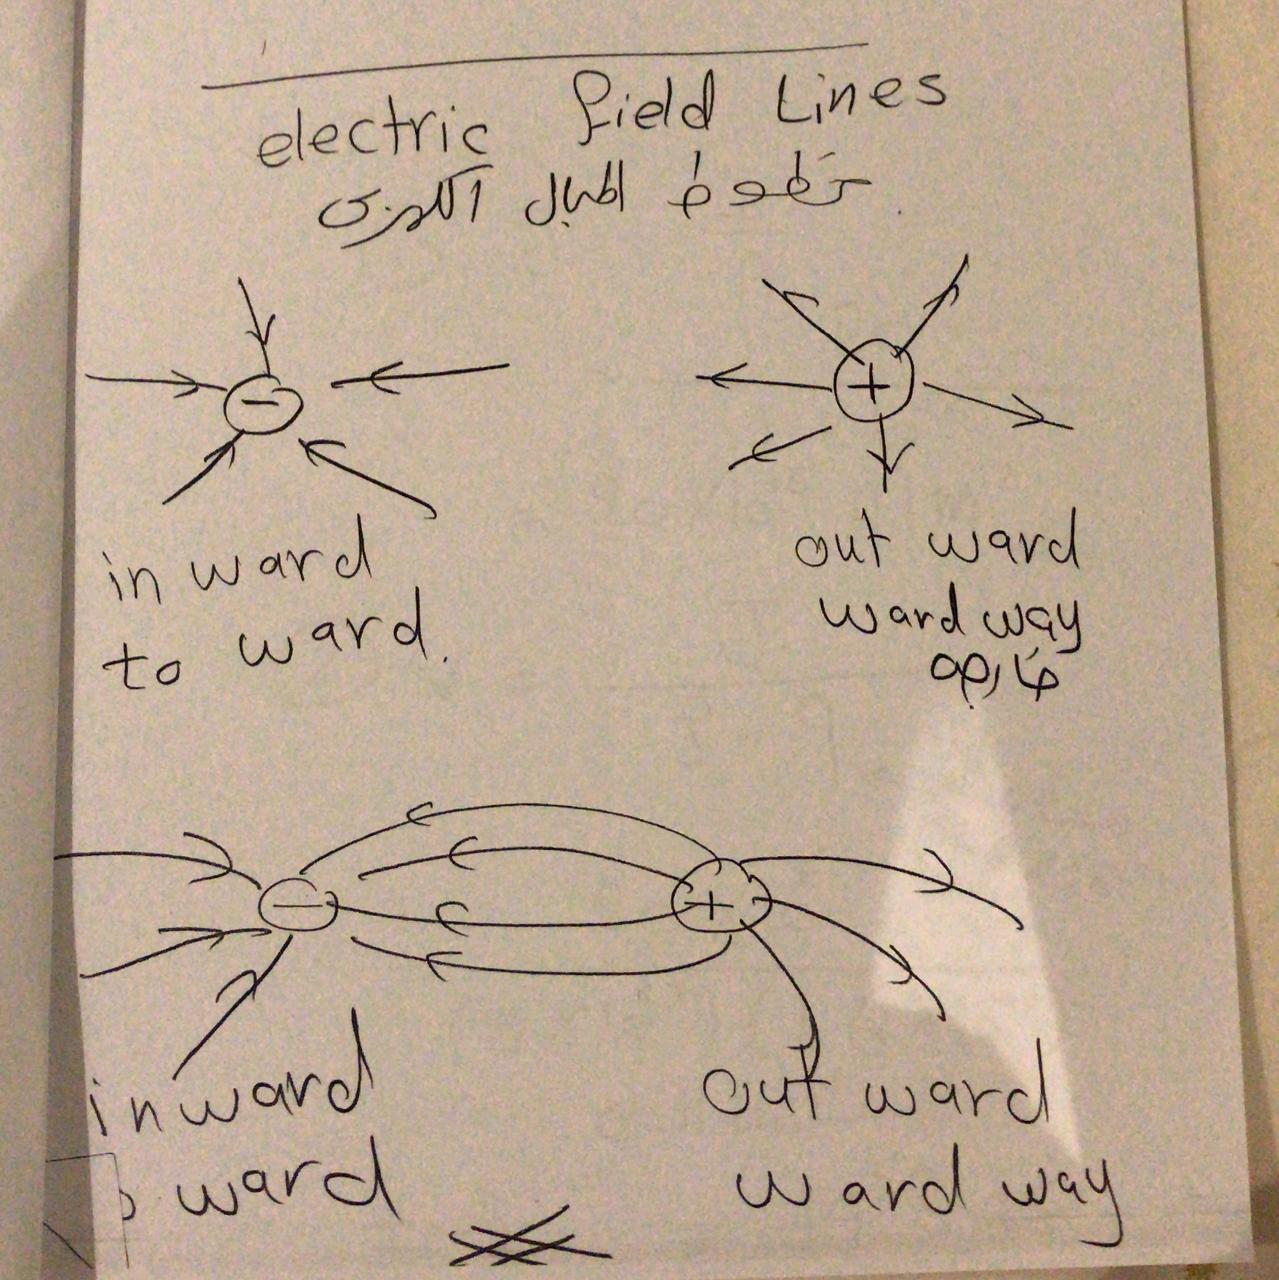 electric field Lines
خطوط المجال الكهربي
in ward
to ward.
out ward
ward way
خارجه
-
+
-
+
inward
ward
out ward
ward way